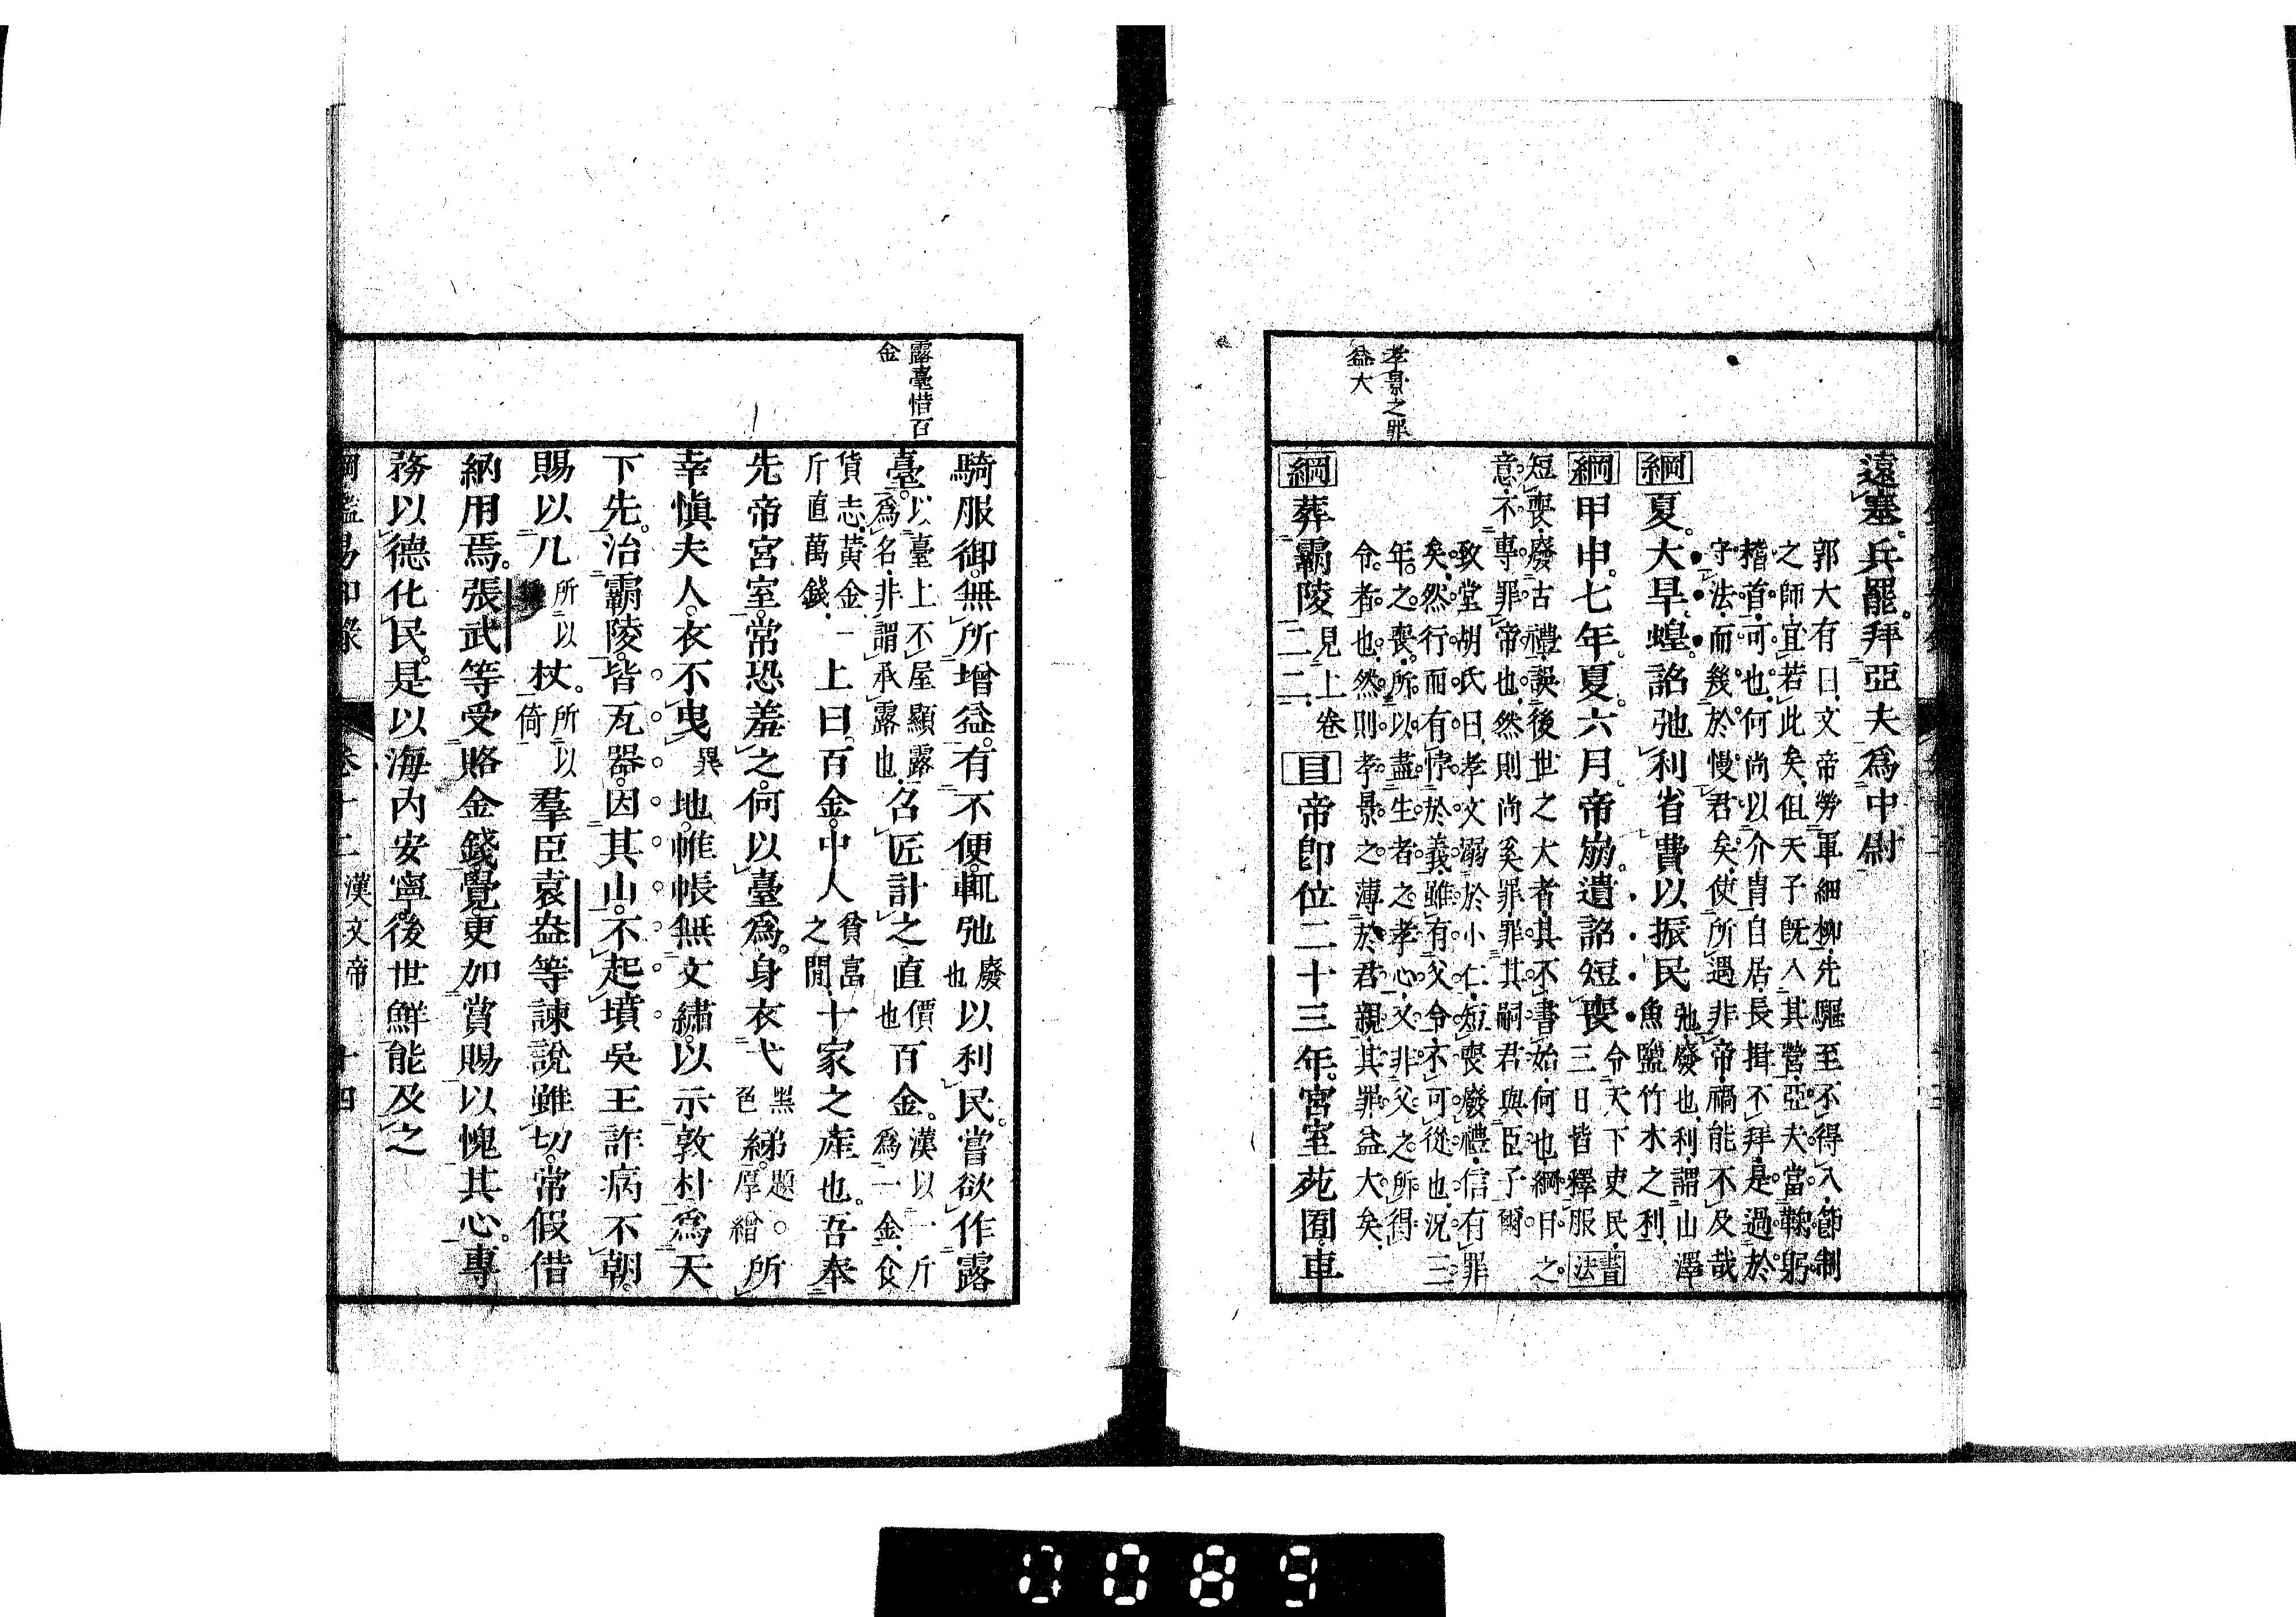 孝景之罪
益大
遠塞兵罷拜亞夫爲中尉
郭大有曰文帝勞軍細柳先驅至不得入節制
之師宜若此矣但天子旣入其營亞夫當鞠躬
稽首可也何尚以介胄自居長揖不拜是過於
守法而幾於慢君矣使所遇非帝禍能不及哉
綱夏大旱蝗詔弛利省費以振民弛廢也利謂山澤
魚鹽竹木之利
綱甲申七年夏六月帝崩遺詔短喪令天下吏民
三日皆釋服書法
短喪廢古禮誤後世之大者其不書始何也綱目之
意不專罪帝也然則尚奚罪罪其嗣君與臣子爾
致堂胡氏曰孝文溺於小仁短喪廢禮信有罪
矣然行而有悖於義雖有父令不可從也況三
年之喪所以盡生者之孝心父非父之所得
令者也然則孝景之薄於君親其罪益大矣
綱葬霸陵見上卷
二二目帝卽位二十三年宮室苑囿車
露臺惜百
金
騎服御無所增益有不便輒弛廢
也以利民嘗欲作露
臺以臺上不屋顯露
爲名非謂承露也召匠計之直價
也百金漢以一斤
爲一金食
貨志黃金一
斤直萬錢上曰百金中人貧富
之閒十家之產也吾奉
先帝宮室常恐羞之何以臺爲身衣弋黑
色綈弟題
厚繒所
幸愼夫人衣不曳異地帷帳無文繡以示敦朴爲天
下先治霸陵皆瓦器因其山不起墳吳王詐病不朝
賜以几所以
杖所以
倚羣臣袁盎等諫說雖切常假借
納用焉張武等受賂金錢覺更加賞賜以愧其心專
務以德化民是以海內安寧後世鮮能及之
綱鑑易知錄 卷十二 漢文帝 十四
0089